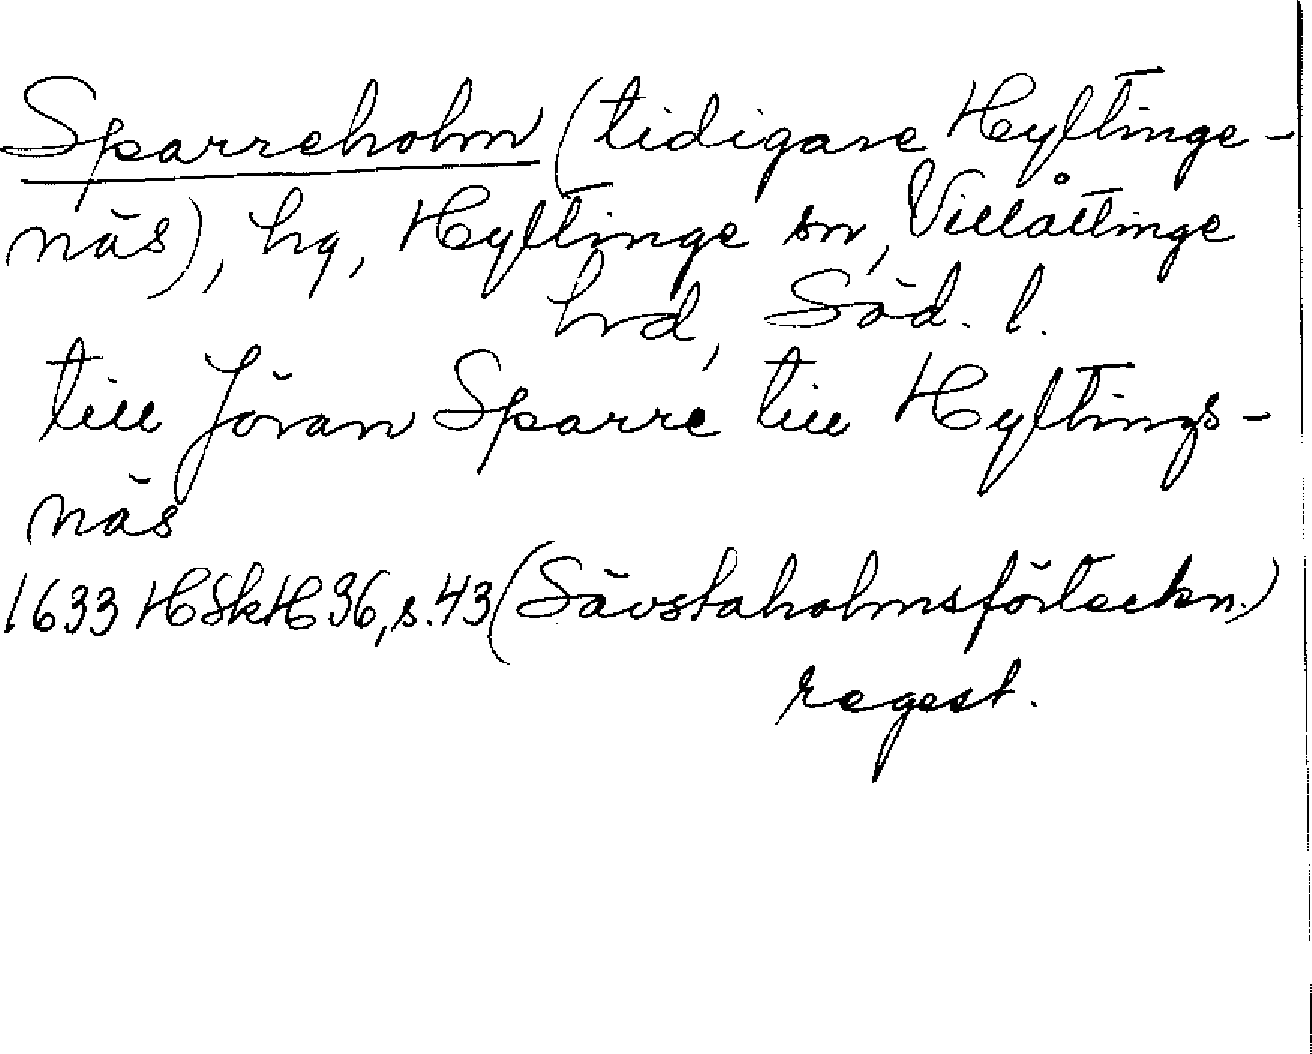 Sparreholm (tidigare Hyltinge-
näs), hg, Hyltinge sn, Villåttinge
hrd, Söd. l.
till Jöran Sparre till Hyltings-
näs
1633 HSkH 36, s. 43 (Sävstaholmsförteckn.)
regest.